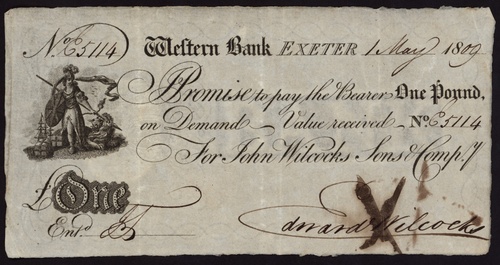 No E5114 Western Bank EXETER 1 May 1809
I Promise to pay the Bearer One Pound,
on Demand Value received No E5114
For John Wilcocks Sons & Comp.y
£ One
Entd
Edward Wilcocks